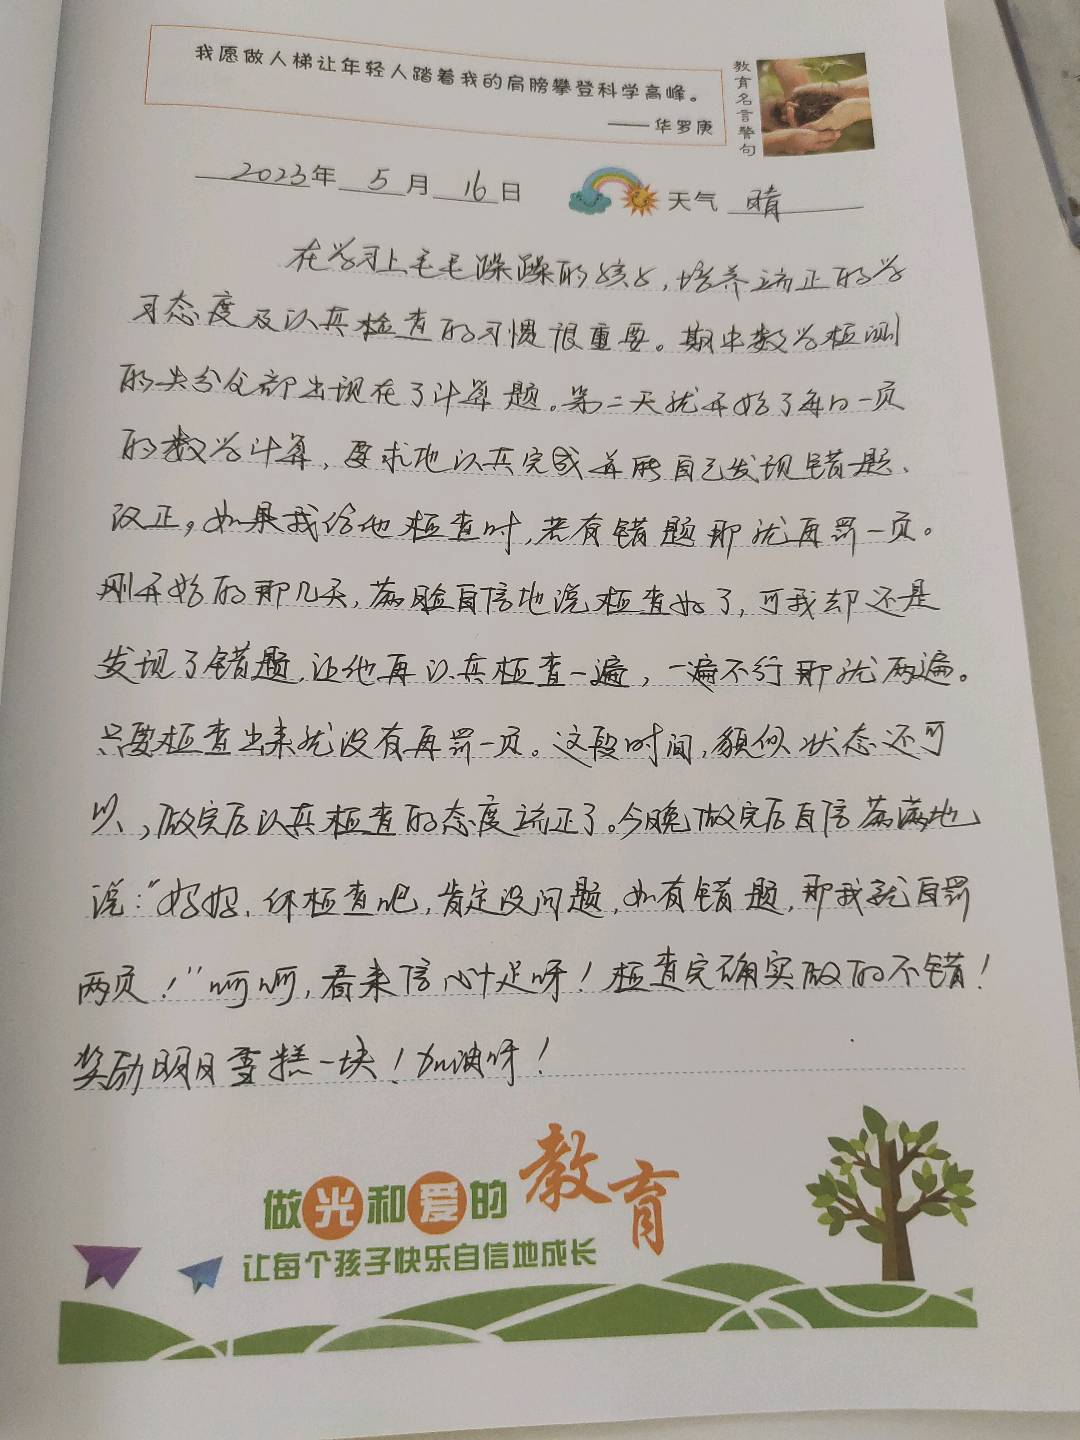 我愿做人梯让年轻人踏着我的肩膀攀登科学高峰。
——华罗庚
教育名言警句
2023年 5月 16日 天气 晴
在学习上毛毛躁躁的孩子,培养端正的学
习态度及认真检查的习惯很重要。期中数学检测
的失分全部出现在了计算题。第二天就开始了每日一页
的数学计算,要求他认真完成并能自己发现错题、
改正。如果我给他检查时,若有错题那就再罚一页。
刚开始的那几天,满脸自信地说检查好了,可我却还是
发现了错题,让他再认真检查一遍,一遍不行那就两遍。
只要检查出来就没有再罚一页。这段时间,貌似状态还可
以,做完后认真检查的态度端正了。今晚做完后自信满满地
说:"妈妈,你检查吧,肯定没问题,如有错题,那我就自罚
两页!"呵呵,看来信心十足呀!检查完确实做的不错!
奖励明日雪糕一块!加油呀!
做光和爱的教育
让每个孩子快乐自信地成长